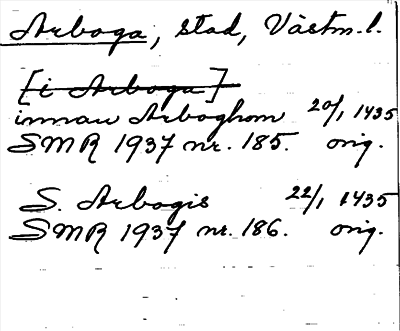 Arboga, stad, Västm.l.
[i Arboga]
innau Arboghom 20/1 1435
SMR 1937 nr. 185. orig.
S. Arbogis 22/1 1435
SMR 1937 nr. 186. orig.